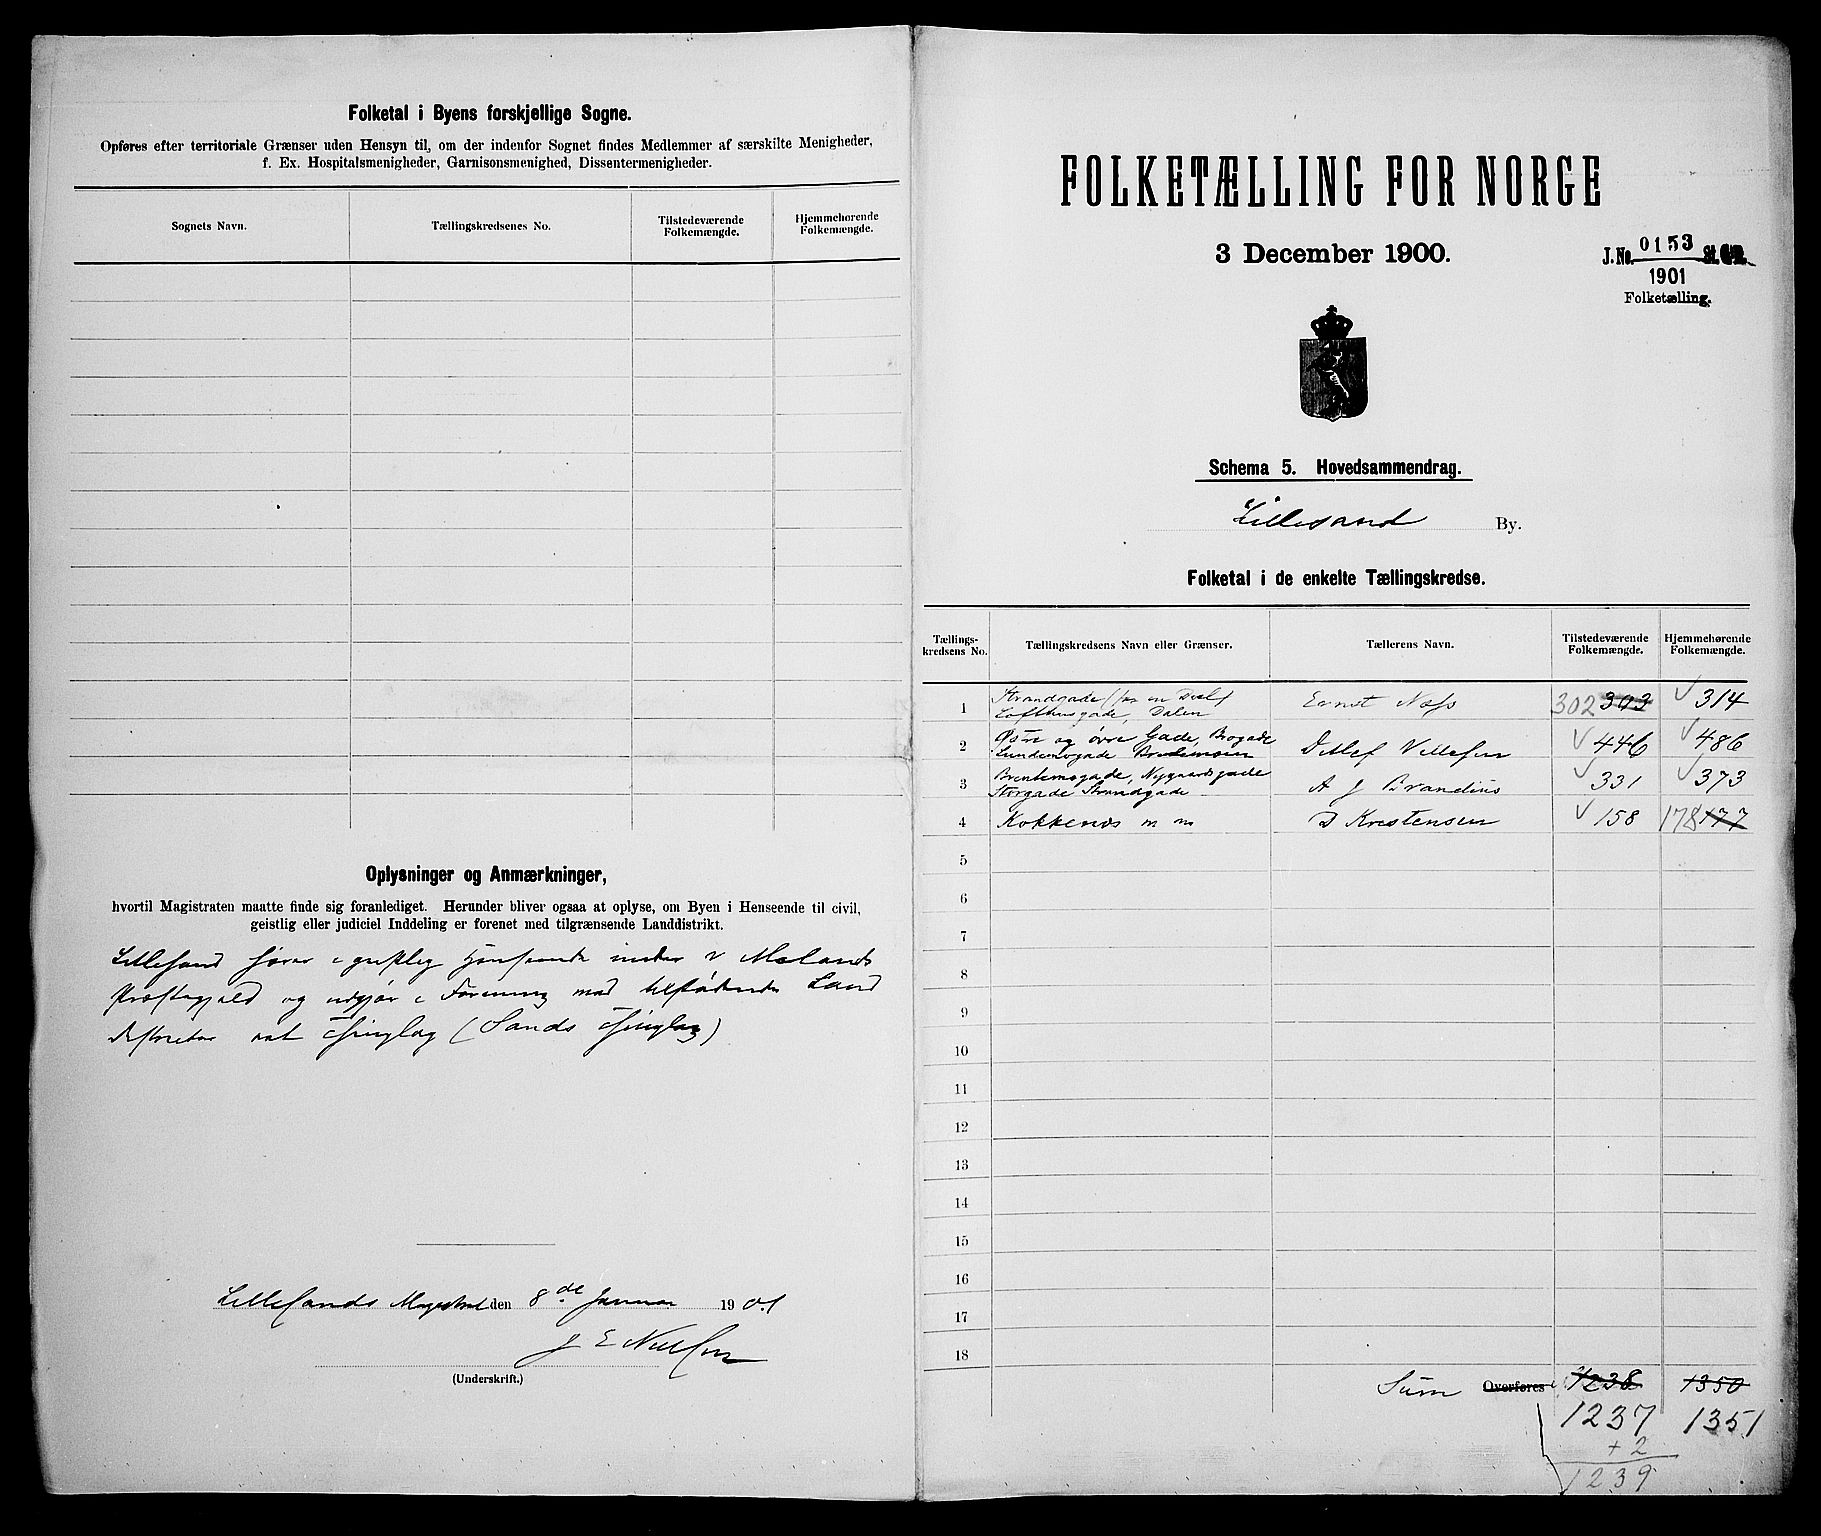 Folketal i Byens forskjellige Sogne.
Opføres efter territoriale Grænser uden Hensyn til, om der indenfor Sognet findes Medlemmer af særskilte Menigheder,
f. Ex. Hospitalsmenigheder, Garnisonsmenighed, Dissentermenigheder.
Sognets Navn. Tællingskredsenes No. Tilstedeværende Folkemængde. Hjemmehørende Folkemængde.
Oplysninger og Anmærkninger,
hvortil Magistraten maatte finde sig foranlediget. Herunder bliver ogsaa at oplyse, om Byen i Henseende til civil,
geistlig eller judiciel Inddeling er forenet med tilgrænsende Landdistrikt.
Lillesand hører i geistlig Henseende under V Molands
Præstegjeld og udgjør i Forening med tilstødende Land
distrikter eet Thinglag (Sands Thinglag)
Lillesands Magistrat den 8de Januar 1901
J E Nielsen
(Underskrift.)
FOLKETÆLLING FOR NORGE
3 December 1900.
J. No. 0153 St. C. B.
1901
Folketælling.
Schema 5. Hovedsammendrag.
Lillesand By.
Folketal i de enkelte Tællingskredse.
Tællingskredsens No. Tællingskredsens Navn eller Grænser. Tællerens Navn. Tilstedeværende Folkemængde. Hjemmehørende Folkemængde.
Strandgade (for en Deel)
1 Lofthusgade, Dalen Ernst Næss 302 303 314
Østre og øvre Gade, Brogade
2 Lundemogade Detlef Villefsen 446 486
Brentemogade, Nygaardsgade
3 Storgade Strandgade A J Brandius 331 373
4 Kokkenes m m D Kristensen 158 178 177
5
6
7
8
9
10
11
12
13
14
15
16
17
18
Sum Overføres 1238 1350
1237 1351
+ 2
1239